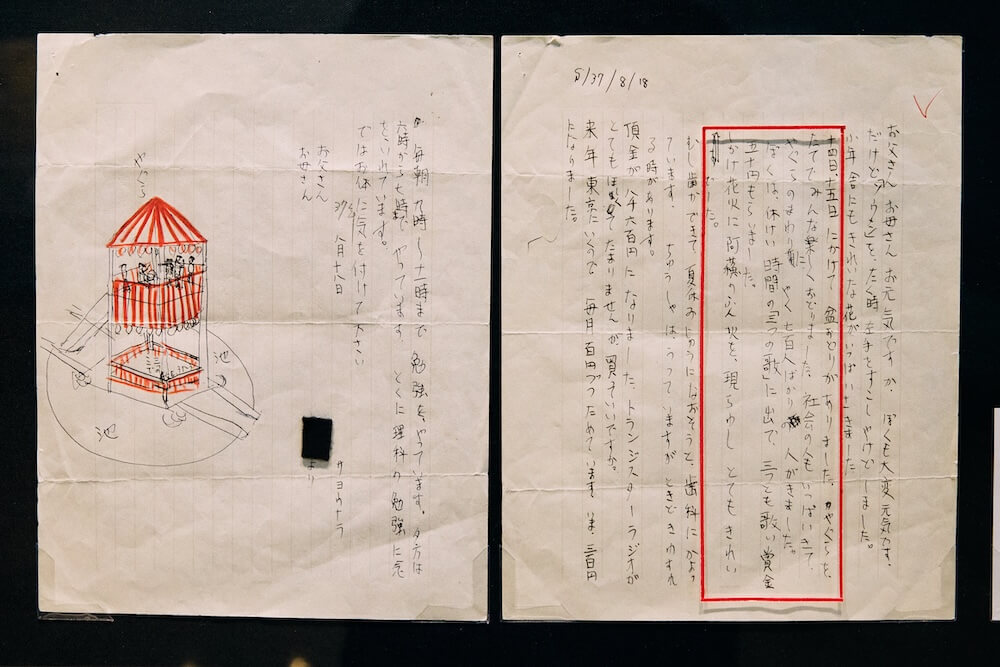 S/37/8/18
お父さんお母さんお元気ですか、ぼくも大変元気です。
だけど を、たく時 左手をすこしやけどしました。
少年舎にもきれいな花がいっぱいさきました
十四日十五日にかけて 盆おどりがありました。やぐらを、
たてて みんな楽しくおどりました。社会の人もいっぱいきて、
やぐらのまわりに やく七百人ばかりの人がきました。
ぼくは、休けい時間の「三つの歌」に出て、三つとも歌い賞金
五十円もらいました。
しかけ花火に阿蘇のふん火を、現らわし とてもきれい
でした。
むし歯ができて 夏休みじゅうになおそうと、歯科にかよっ
ています。ちゅうしゃは、うっていますがときどきわすれ
る時があります。
預金が八千六百円になりました、トランジスターラジオが
とてもほしくてたまりませんが買っていいですか。
来年東京にいくので 毎月百円づつためています、いま、三百円
たまりました。
毎朝 九時〜十一時まで 勉強を、やっています。夕方は
六時から七時まで やっています とくに理科の勉強に念
をいれています。
ではお体に気を付けて下さい
サヨウナラ
37年 八月十八日
より
お父さん
お母さん
やぐら
池
池